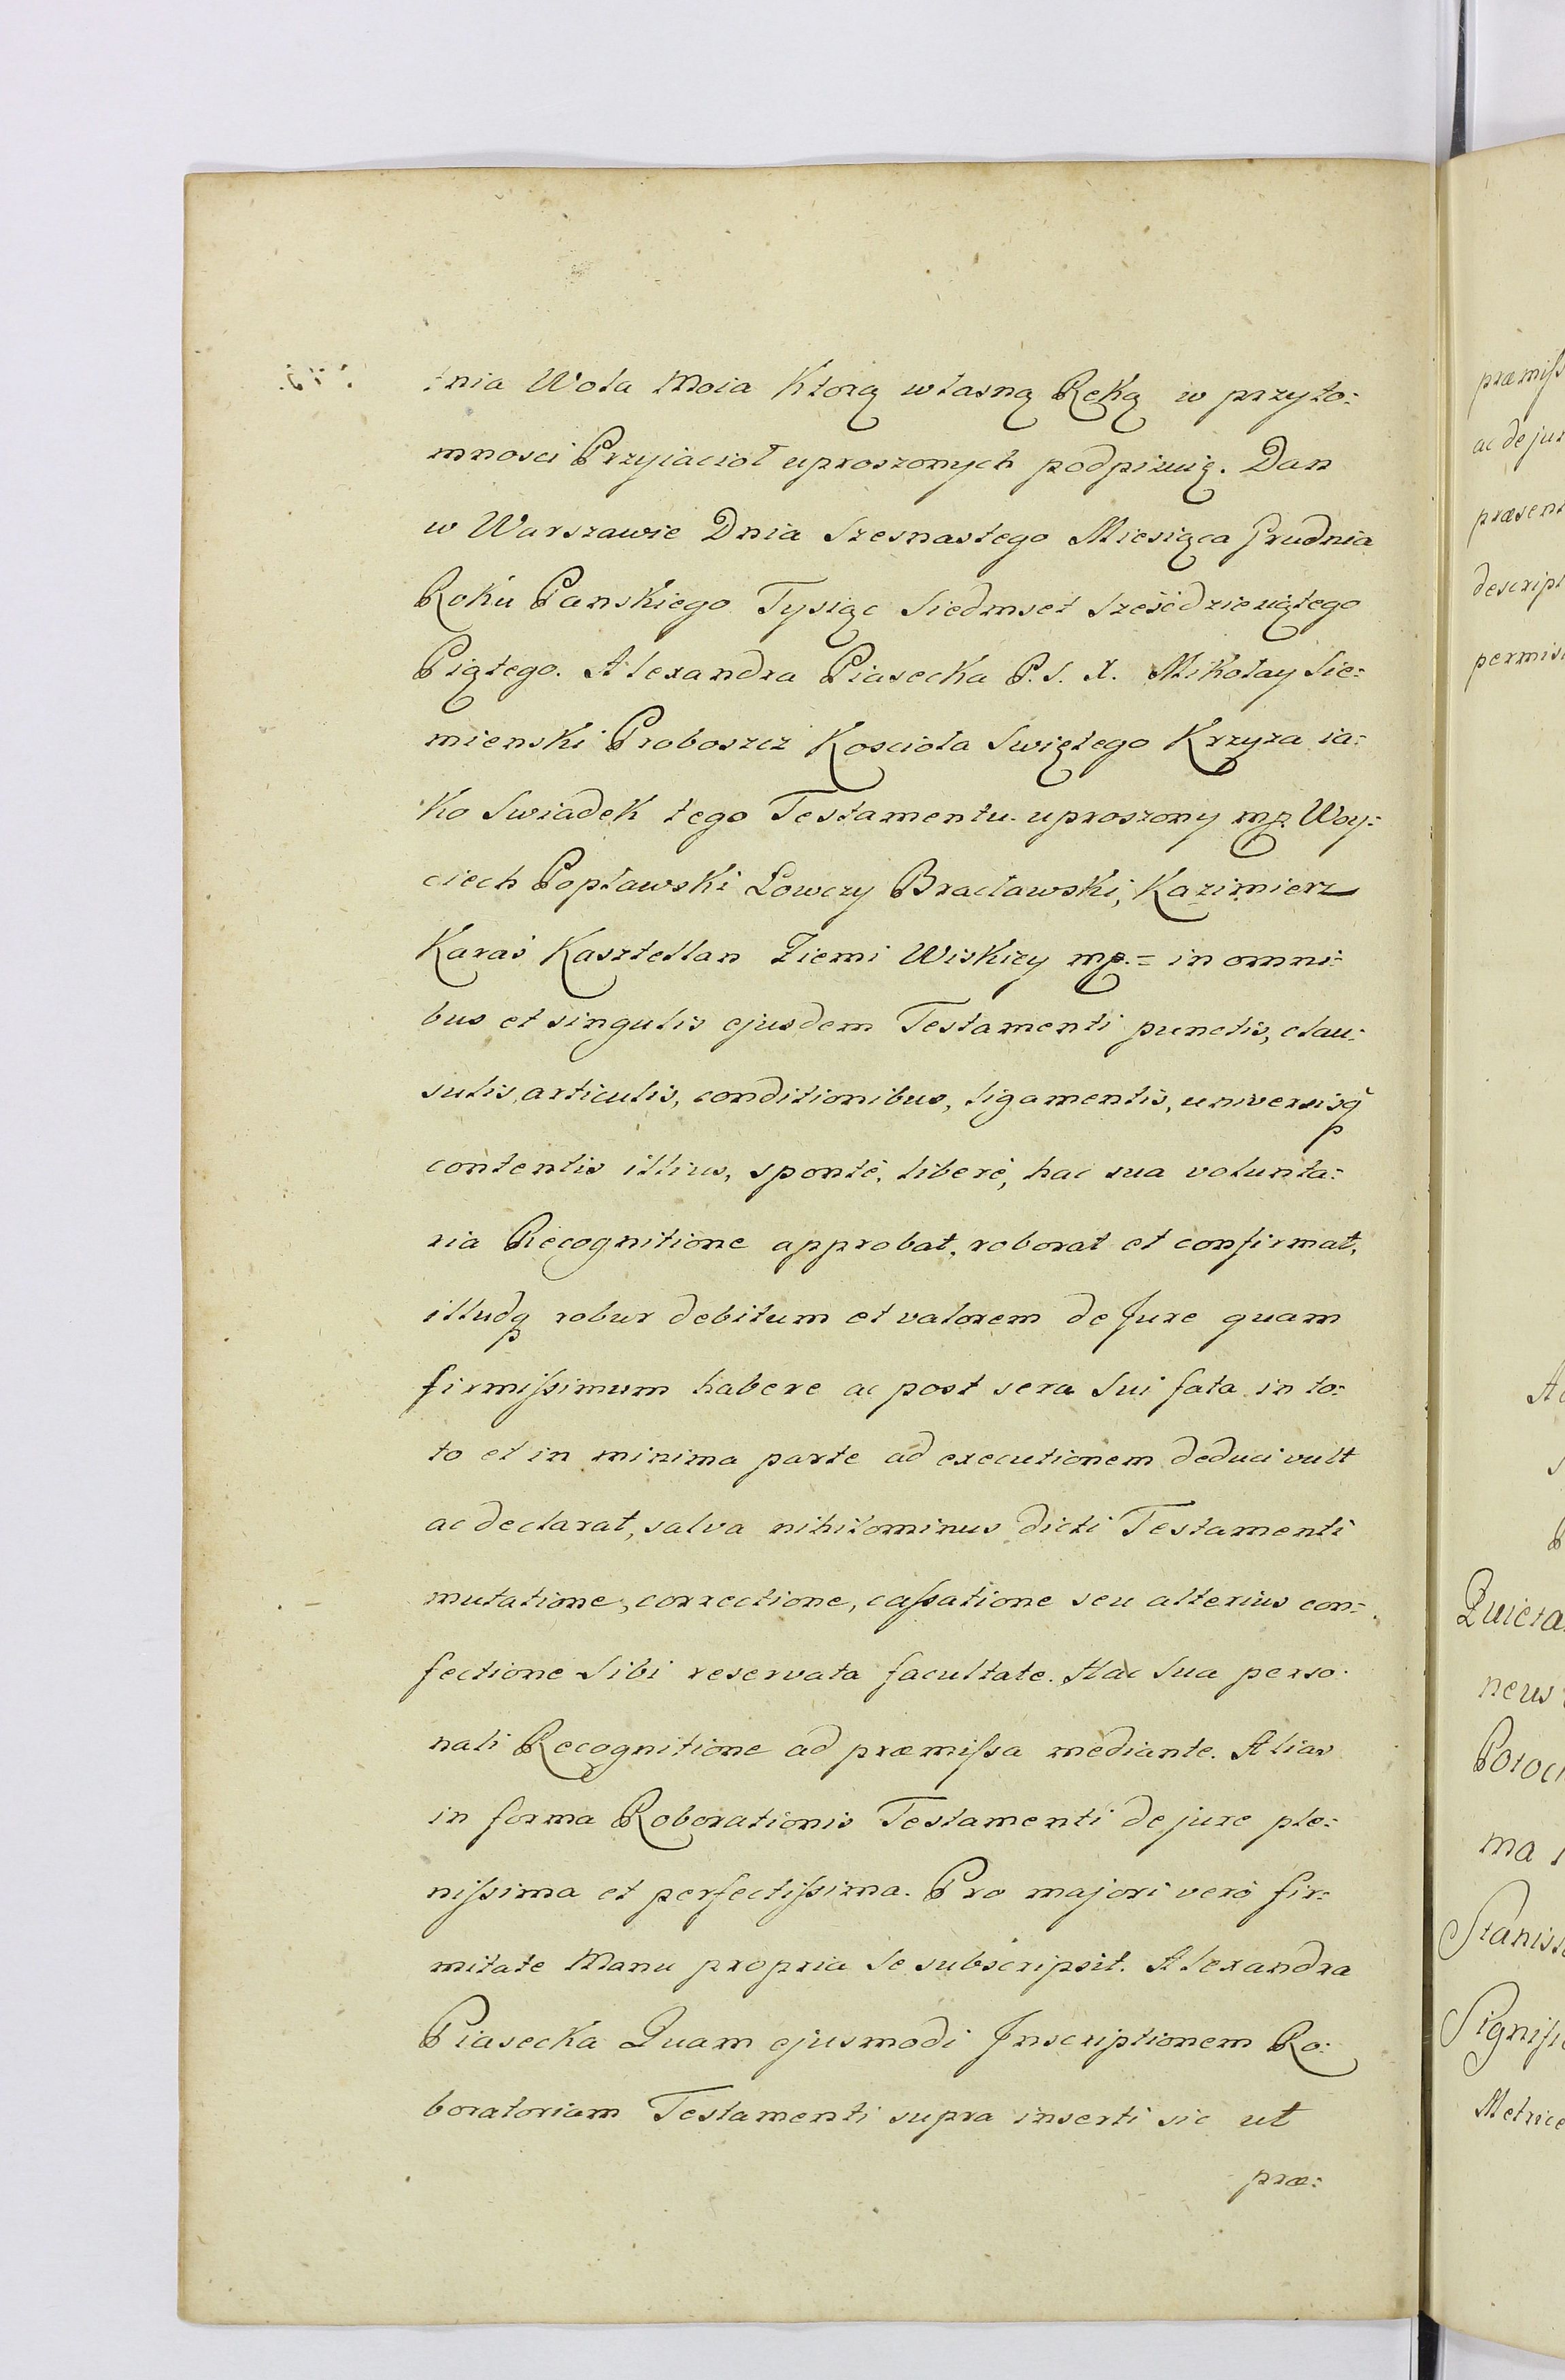 tnia Wola Moia Ktorą własną Ręką w przyto:
mnosci Przyiacioł uproszonych podpisuię. Dan
w Warszawie Dnia Szesnastego Miesiąca Grudnia
Roku Panskiego Tysiąc Siedmset Sześćdziesiątego
Piątego. Alexandra Piasecka P. S. X. Mikołay Sie:
mienski Proboszcz Kosciola Swiętego Krzyza ia:
ko Swiadek tego Testamentu uproszony mp. Woy:
ciech Popławski Łowczy Bracławski, Kazimierz
Karaś Kasztellan Ziemi Wiskiey mp. = in omni:
bus et singulis ejusdem Testamenti punctis, clau:
sulis, articulis, conditionibus, ligamentis, universisq
contentis illius, spontè, liberè, hac sua volunta:
ria Recognitione approbat, roborat et confirmat,
illudq robur debitum et valorem de Jure quam
firmissimum habere ac post sera Sui fata in to:
to et in minima parte ad executionem deduci vult
ac declarat, salva nihilominus dicti Testamenti
mutatione, correctione, cassatione seu alterius con:
fectione Sibi reservata facultate. Hac Sua perso:
nali Recognitione ad præmissa mediante. Alias
in forma Roborationis Testamenti de jure ple:
nissima et perfectissima. Pro majori verò fir:
mitate Manu propria Se subscripsit. Alexandra
Piasecka Quam ejusmodi Inscriptionem Ro:
boratoriam Testamenti supra inserti sic ut
præ:
præmiss
ac de jur
præsent
descript
permis
Quieta
neus
Potoc
ma
Stanis
Signif
Metrice